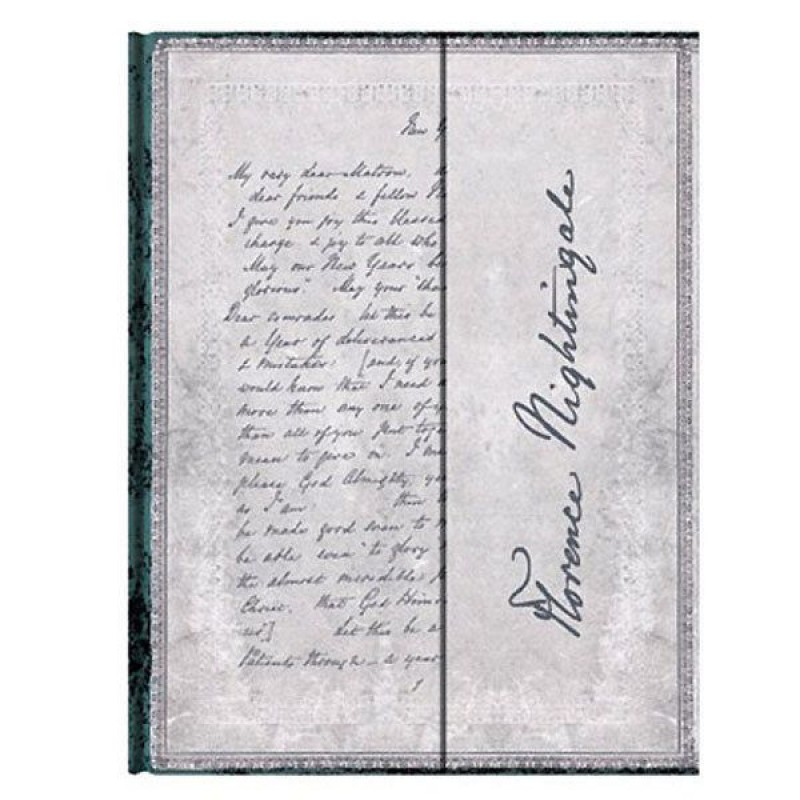 New Y
My very dear Matron,
dear friends & fellow
I give you joy this blessed
change & joy to all who
May our New Years be
glorious". May your "thou
Dear comrades let this be
a Year of deliverances
& mistakes. [and, if you
would know that I need
more than any one of y
than all of you put toge
mean to give on. I me
please God Almighty, yo
as I am then
be made good soon to
be able even "to glory
the almost incredible
Christ. that God Himse
us"] Let this be a
Patients through - a year
Florence Nightingale